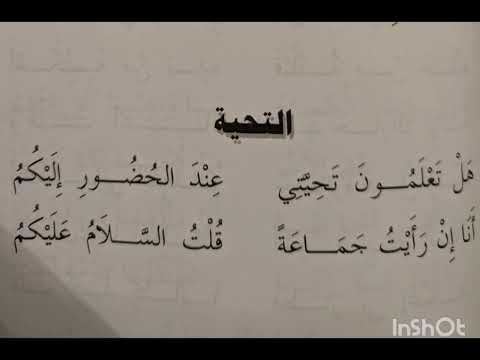 التحية
هَلْ تَعْلَمُـــونَ تَحِيَّتِي عِنْدَ الحُضُـــورِ إِلَيْكُمُ
أَنَا إِنْ رَأَيْتُ جَمَـــاعَةً قُلْتُ السَّـــلَامُ عَلَيْكُمُ
InShOt